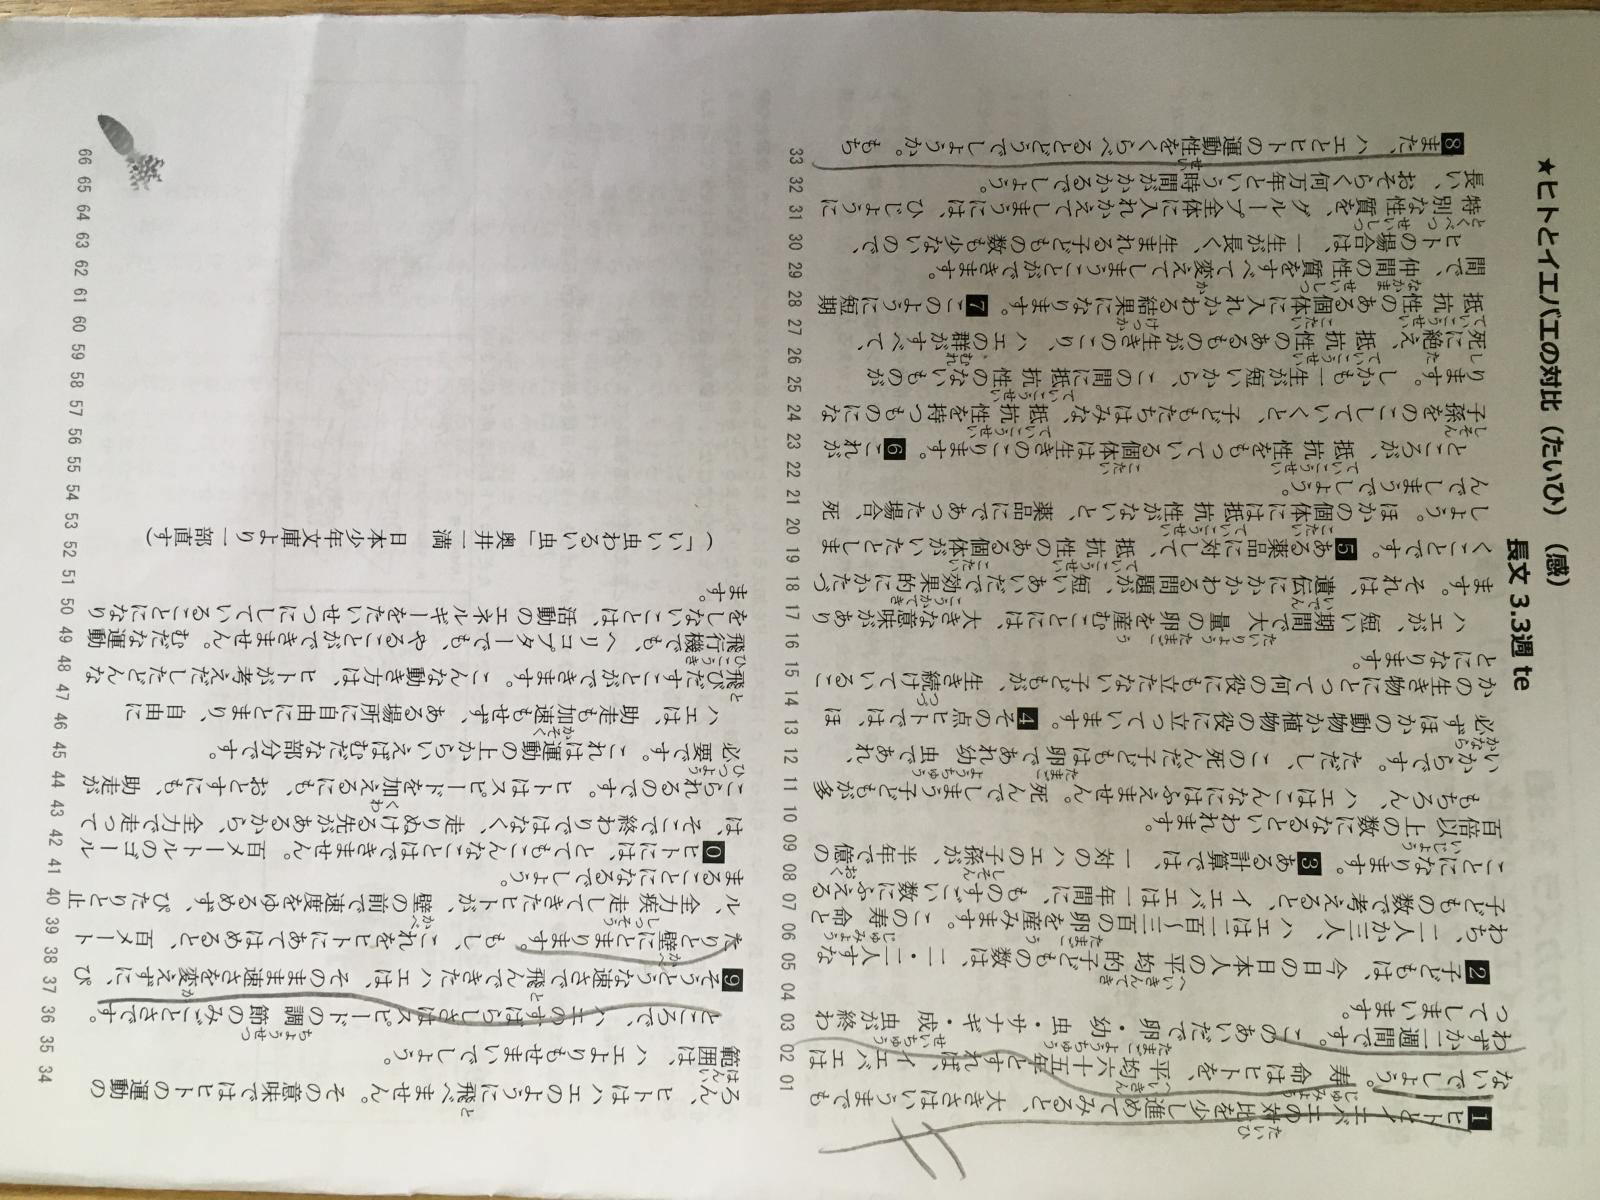 ★ヒトとイエバエの対比(たいひ) (感)
長文 3.3週 te
1ヒトとイエバエの対比を少し進めてみると、大きさはいうまでも
ないでしょう。寿命はヒトを、平均六十五年とすれば、イエバエは
わずか二週間です。このあいだで卵・幼虫・サナギ・成虫が終わ
ってしまいます。
2子どもは、今日の日本人の平均的子どもの数は、二・二人すな
わち、二人か三人、ハエは二百〜三百の卵を産みます。この寿命と
子どもの数で考えると、イエバエは一年間に、ものすごい数にふえる
ことになります。3ある計算では、一対のハエの子孫が、半年で億の
百倍以上の数になるといわれます。
もちろん、ハエはこんなにはふえません。死んでしまう子どもが多
いからです。ただし、この死んだ子どもは卵であれ幼虫であれ、
必ずほかの動物か植物の役に立っています。4その点ヒトでは、ほ
かの生き物にとって何の役にも立たない子どもが、生き続けているこ
とになります。
ハエが、短い期間で大量の卵を産むことには、大きな意味があり
ます。それは、遺伝にかかわる問題が、短いあいだで効果的にかたづ
くことです。5ある薬品に対して、抵抗性のある個体がいたとしま
しょう。ほかの個体には抵抗性がないと、薬品にであった場合、死
んでしまうでしょう。
ところが、抵抗性をもっている個体は生きのこります。6これが
子孫をのこしていくと、子どもたちはみな、抵抗性を持つものにな
ります。しかも一生が短いから、この間に抵抗性のないものが
死に絶え、抵抗性のあるものが生きのこり、ハエの群がすべて、
抵抗性のある個体に入れかわる結果になります。7このように短期
間で、仲間の性質をすべて変えてしまうことができます。
ヒトの場合は、一生が長く、生まれる子どもの数も少ないので、
特別な性質を、グループ全体に入れかえてしまうには、ひじょうに
長い、おそらく何万年という時間がかかるでしょう。
8また、ハエとヒトの運動性をくらべるとどうでしょうか。もち
ろん、ヒトはハエのように飛べません。その意味ではヒトの運動の
範囲は、ハエよりもせまいでしょう。
ところで、ハエのすばらしさはスピードの調節のみごとさです。
9そうとうな速さで飛んできたハエは、そのまま速さを変えずに、ぴ
たりと壁にとまります。もし、これをヒトにあてはめると、百メート
ル、全力疾走してきたヒトが、壁の前で速度をゆるめず、ぴたりと止
まることになるでしょう。
0ヒトには、とてもこんなことはできません。百メートルのゴール
は、そこで終わりではなく、走りぬける先があるから、全力で走って
こられるのです。ヒトはスピードを加えるにも、おとすにも、助走が
必要です。これは運動の上からいえばむだな部分です。
ハエは、助走も加速もせず、ある場所に自由にとまり、自由に
飛びだすことができます。こんな動き方は、ヒトが考えだしたどんな
飛行機でも、ヘリコプターでも、やることができません。むだな運動
をしないことは、活動のエネルギーをたいせつにしていることになり
ます。
(「いい虫わるい虫」奥井一満 日本少年文庫より一部直す)
01
02
03
04
05
06
07
08
09
10
11
12
13
14
15
16
17
18
19
20
21
22
23
24
25
26
27
28
29
30
31
32
33
34
35
36
37
38
39
40
41
42
43
44
45
46
47
48
49
50
51
52
53
54
55
56
57
58
59
60
61
62
63
64
65
66